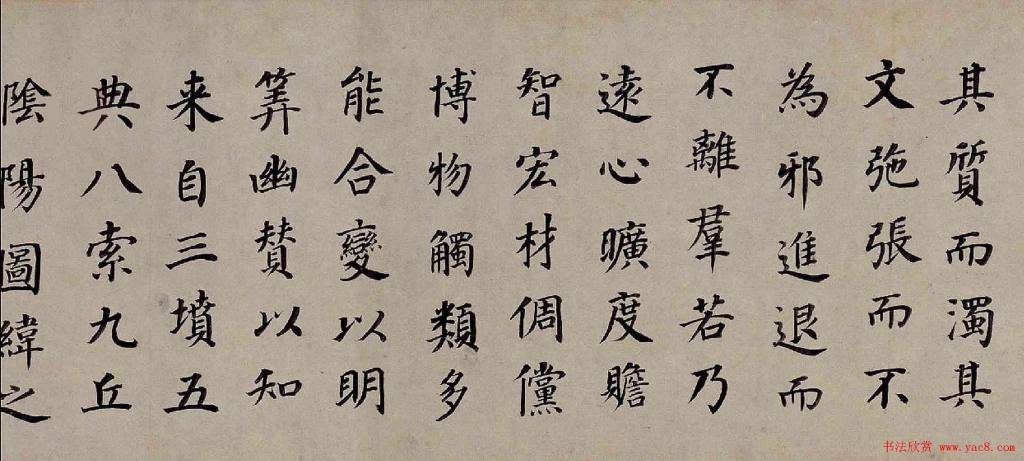 其質而濁其
文弛張而不
為邪進退而
不離羣若乃
遠心曠度贍
智宏材倜儻
博物觸類多
能合變以明
筭幽賛以知
来自三墳五
典八索九丘
陰陽圖緯之
书法欣赏 www.yac8.com